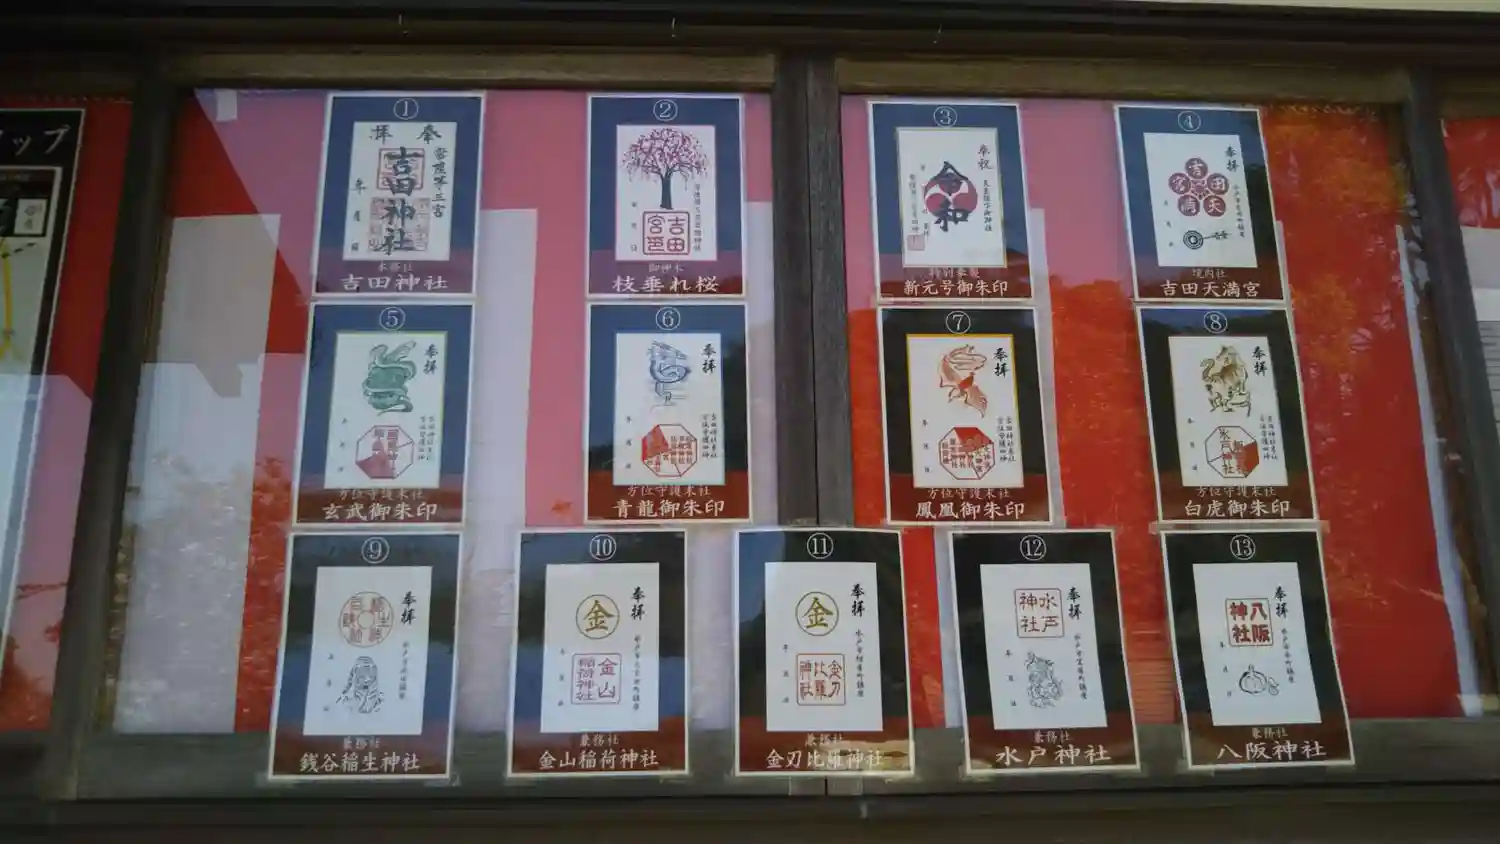 ップ
①
奉拝
常陸第三宮
吉田神社
年 月 日
本務社
吉田神社
②
吉田
宮
年 月 日
御神木
枝垂れ桜
③
奉祝
令和
新元号御朱印
④
奉拝
吉田天満宮
年 月 日
境内社
吉田天満宮
⑤
奉拝
年 月 日
方位守護末社
玄武御朱印
⑥
奉拝
年 月 日
方位守護末社
青龍御朱印
⑦
奉拝
年 月 日
方位守護末社
鳳凰御朱印
⑧
奉拝
水戸神社
年 月 日
方位守護末社
白虎御朱印
⑨
奉拝
年 月 日
兼務社
銭谷稲生神社
⑩
奉拝
金
金山
稲荷神社
年 月 日
兼務社
金山稲荷神社
⑪
奉拝
金
金刀
比羅
神社
年 月 日
兼務社
金刃比羅神社
⑫
奉拝
水戸
神社
年 月 日
兼務社
水戸神社
⑬
奉拝
八阪
神社
年 月 日
兼務社
八阪神社